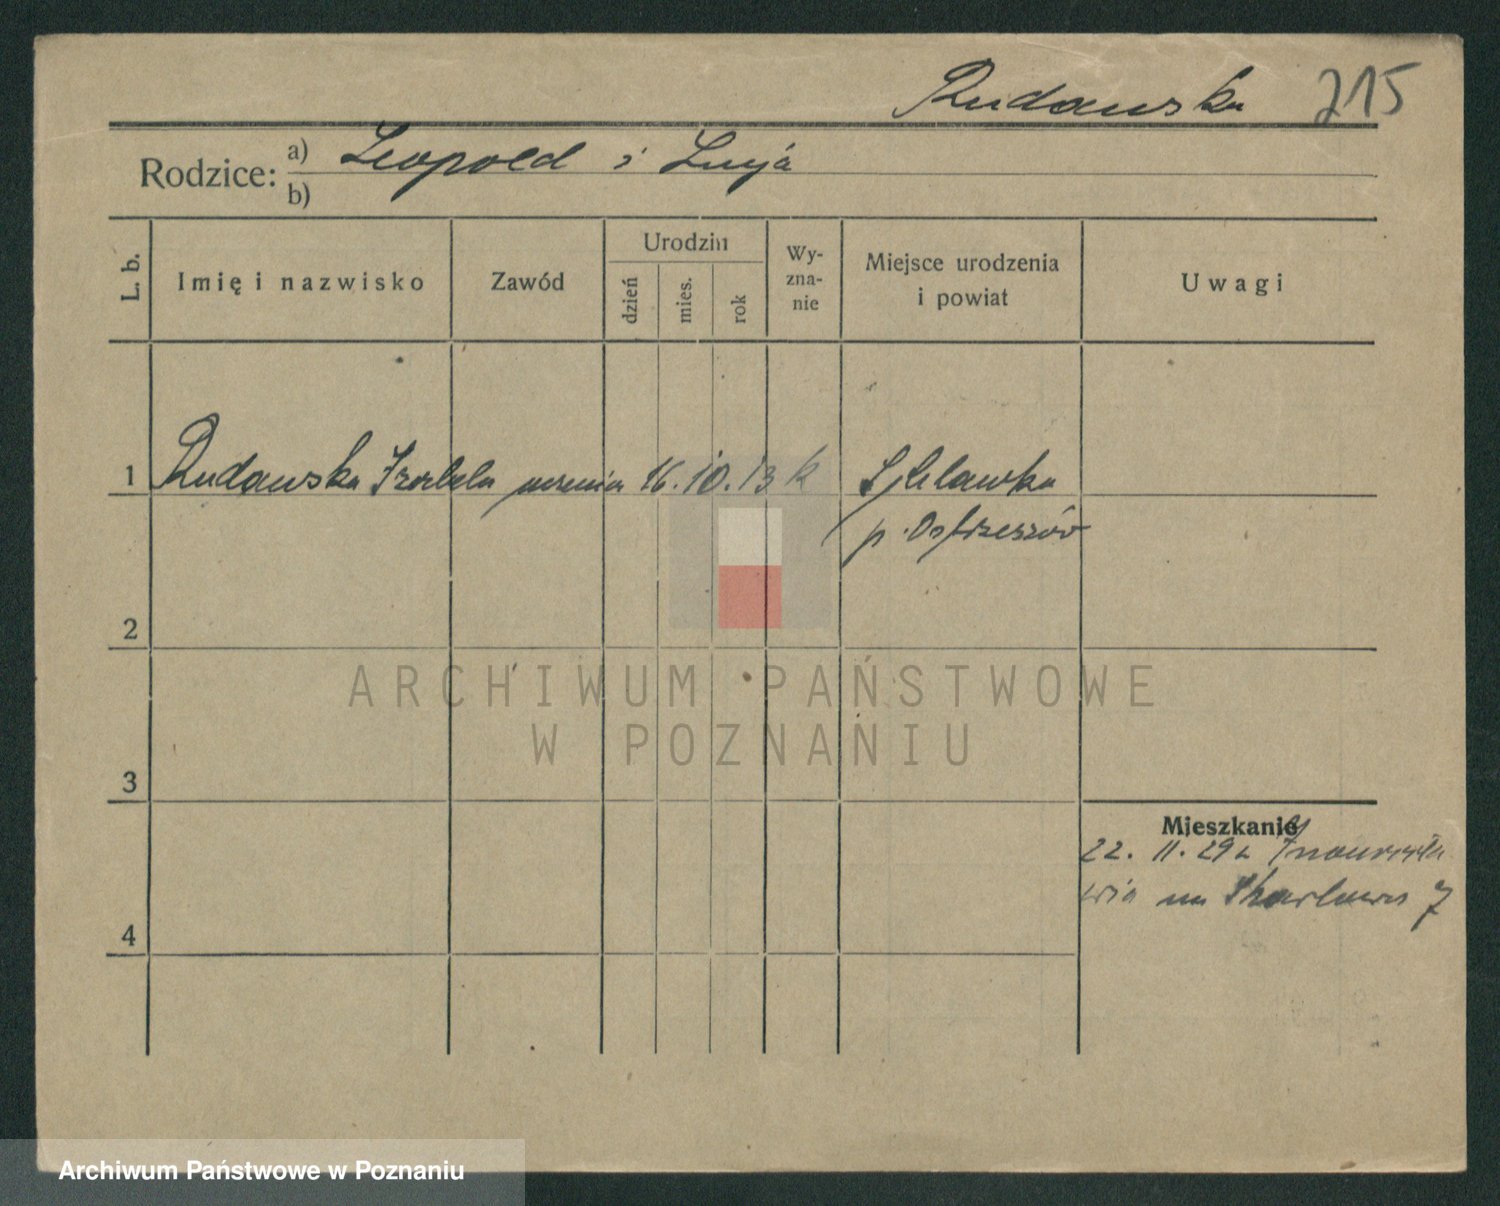 Rudawska 215
Rodzice: a) Leopold i Łucja
b)
L. b.
Imię i nazwisko
Zawód
Urodzin
dzień
mies.
rok
Wy-
zna-
nie
Miejsce urodzenia
i powiat
Uwagi
1 Rudawska Izabela uczenica 16. 10. 13 k
p. Ostrzeszów
2
3
Mieszkanie
22. 11. 29 z Inowrocła
wia
7
4
ARCHIWUM PAŃSTWOWE
W POZNANIU
Archiwum Państwowe w Poznaniu